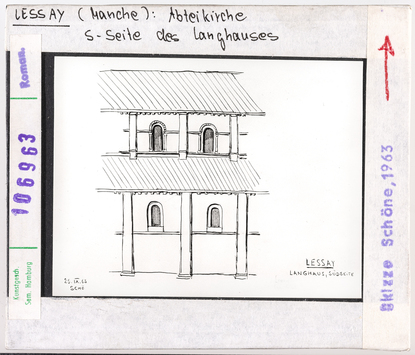 LESSAY (Manche): Abteikirche
S-Seite des Langhauses
Roman.
106963
Kunstgesch.
Sem. Hamburg
Skizze Schöne, 1963
LESSAY
LANGHAUS, SÜDSEITE